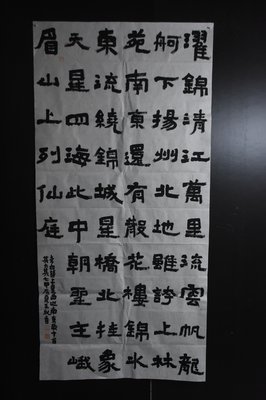 濯錦清江萬里流雲帆龍
舸下揚州北地雖誇上林
苑南京還有散花樓錦水
東流繞錦城星橋北挂象
天星四海此中朝聖主峨
眉山上列仙庭